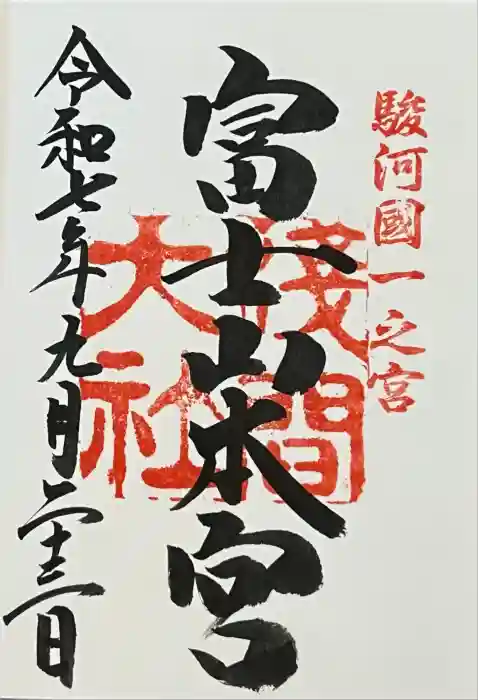 駿河國一之宮
富士山本宮
淺間大社
令和七年九月二十三日